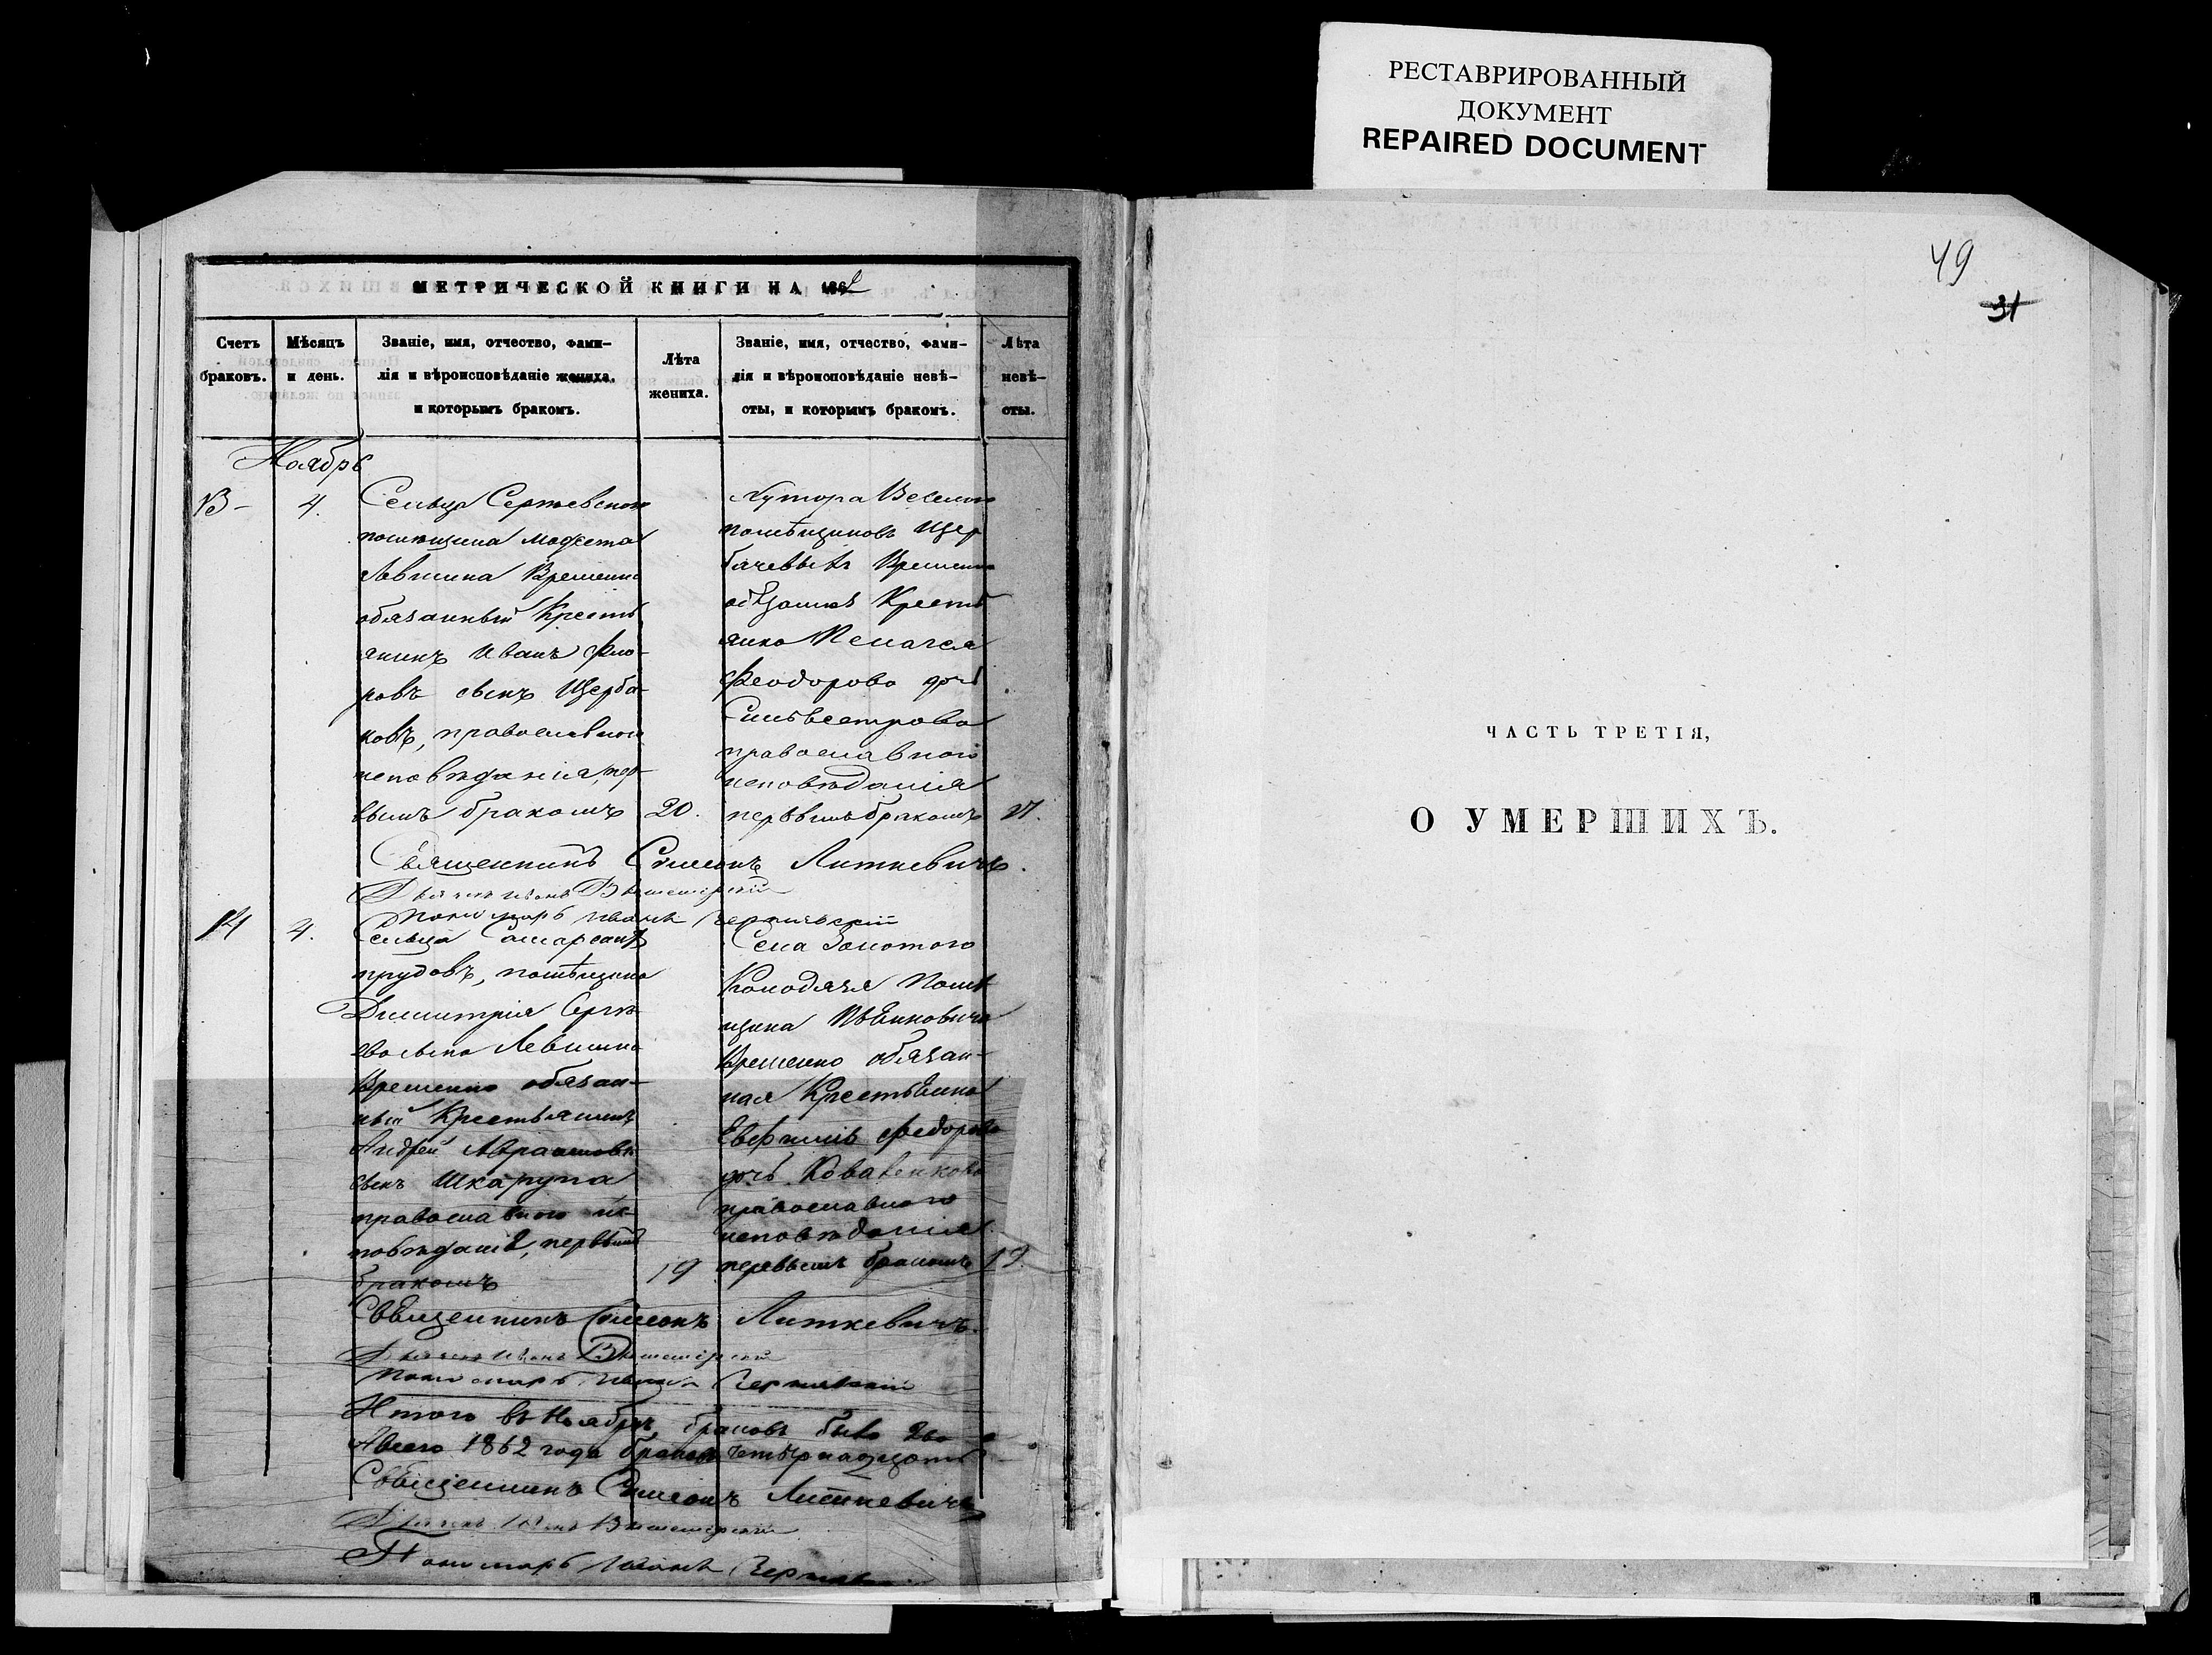 РЕСТАВРИРОВАННЫЙ
ДОКУМЕНТ
REPAIRED DOCUMENT
МЕТРИЧЕСКОЙ КНИГИ НА 1862
Счетъ браковъ.
Мѣсяцъ и день.
Званіе, имя, отчество, фами-
лія и вѣроисповѣданіе жениха,
и которымъ бракомъ.
Лѣта жениха.
Званіе, имя, отчество, фами-
лія и вѣроисповѣданіе невѣ-
сты, и которымъ бракомъ.
Лѣта невѣ-
сты.
Ноябрь
13 -
4.
Сельца Сергѣевского
помѣщика Модеста
Левшина Временно
обязанный Кресть
янинъ Иванъ
ровъ сынъ Щерба-
ковъ, православного
исповѣданія, пер-
вымъ бракомъ
20.
Хутора
помѣщиковъ Щер
бачевыхъ Временно
обязанная Кресть
янка Пелагея
Феодорова дочь
Сильвестрова
православного
исповѣданія
первымъ бракомъ
21.
Священникъ Симеонъ Литкевичъ.
Дьячекъ Иванъ
Пономарь Иванъ Чернявскій
14
4.
Сельца
прудовъ, помѣщика
Димитрія Сергѣ
Левшина
Временно обязан-
ный Крестьянинъ
Андрей Авраамовъ
сынъ Шкарупа
православного ис
повѣданія, первымъ
бракомъ
19
Села Золотого
Колодязя Помѣ
щика
Временно обязан-
ная Крестьянка
Евфимія Федорова
дочь
православного
исповѣданія.
первымъ бракомъ
19.
Священникъ Симеонъ Литкевичъ.
Дьячекъ Иванъ
Пономарь Иванъ Чернявскій
Итого въ Ноябрѣ браковъ было два
А всего 1862 года браковъ четырнадцать
Священникъ Симеонъ Литкевичъ
Дьячекъ Иванъ
Пономарь Иванъ
49
31
ЧАСТЬ ТРЕТІЯ,
О УМЕРШИХЪ.